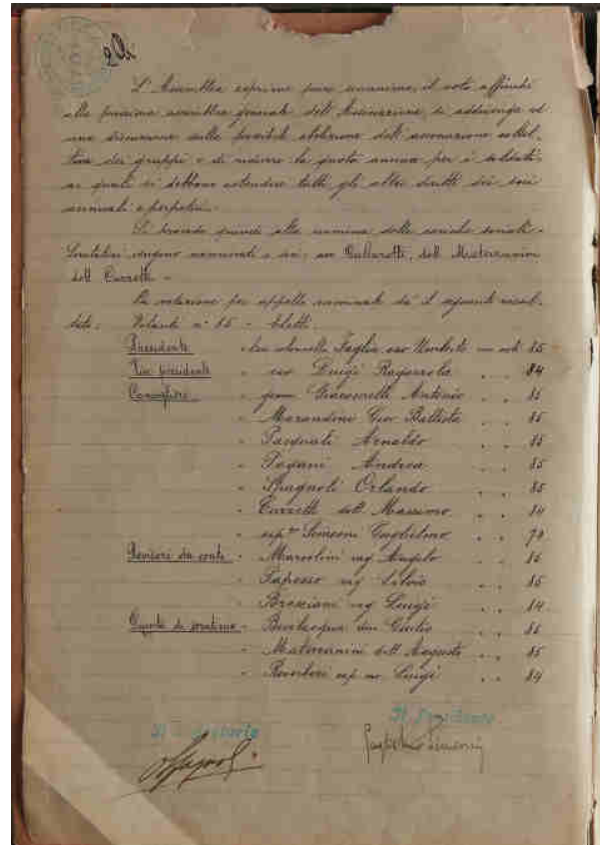 L'Assemblea esprime pure unanime, il voto affinchè
alla prossima assemblea generale dell'Associazione, si addivenga ad
una discussione sulla possibile abolizione dell'associazione collet-
tiva dei gruppi e di ridurre la quota annua per i soldati,
ai quali si debbono estendere tutti gli altri diritti dei soci
annuali e perpetui.
Si procede quindi alla nomina delle cariche sociali.
Scrutatori vengono nominati i soci: Dott. Materzanini
dott Curzetti -
La votazione per appello nominale dà il seguente risul-
tato: Votanti n° 85 - Eletti:
Presidente - Taglia cav Umberto con voti 85
Vice presidente - cav Luigi Ragazzola . . . 84
Consigliere - Antonio . . . 85
- Marandini Giov Battista . . 85
- Pasquali Arnaldo . . 85
- Pagani Andrea . . 85
- Spagnoli Orlando . . 85
- Curzetti dott Massimo . . 84
- Simeoni Guglielmo . . 79
Revisori dei conti - Marcolini rag Angelo . . 85
- rag Silvio . . 85
- Bresciani rag Luigi . . 84
- Bevilacqua don Giulio . . 85
- Materzanini dott Augusto . . 85
- Luigi . . 84
Il Segretario
Il Presidente